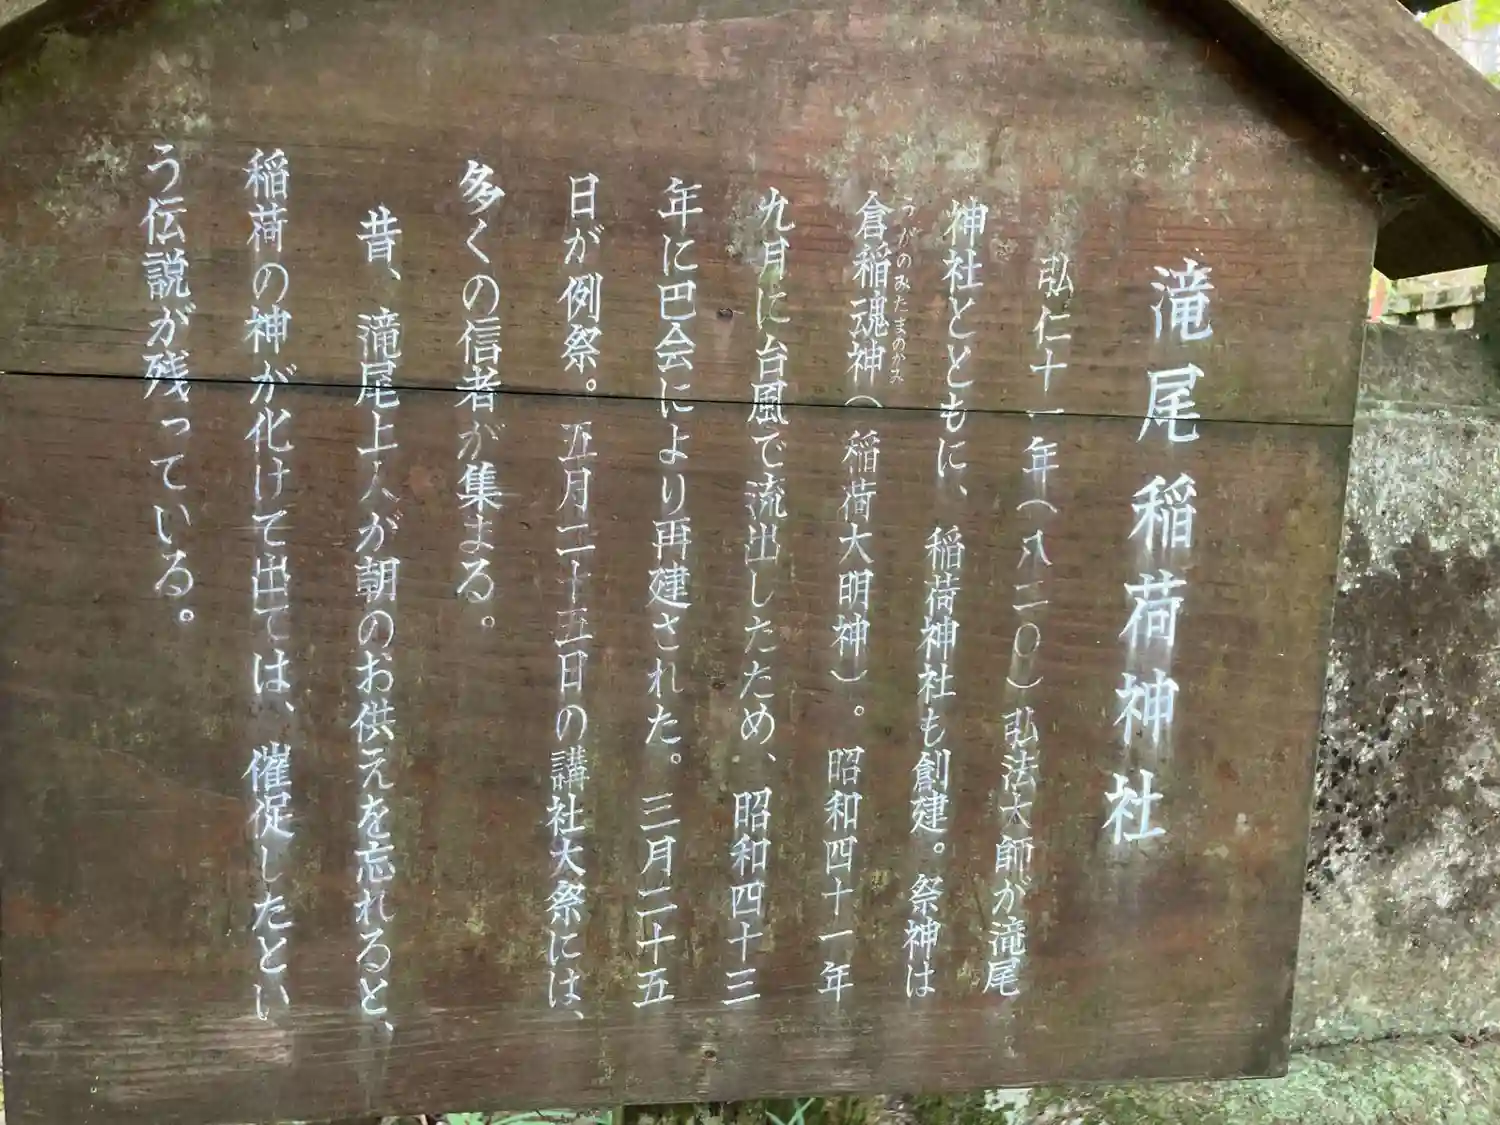 滝尾稲荷神社
弘仁十一年（八二〇）弘法大師が滝尾
神社とともに、稲荷神社も創建。祭神は
うがのみたまのかみ
倉稲魂神（稲荷大明神）。昭和四十一年
九月に台風で流出したため、昭和四十三
年に巴会により再建された。三月二十五
日が例祭。五月二十五日の講社大祭には、
多くの信者が集まる。
昔、滝尾上人が朝のお供えを忘れると、
稲荷の神が化けて出ては、催促したとい
う伝説が残っている。